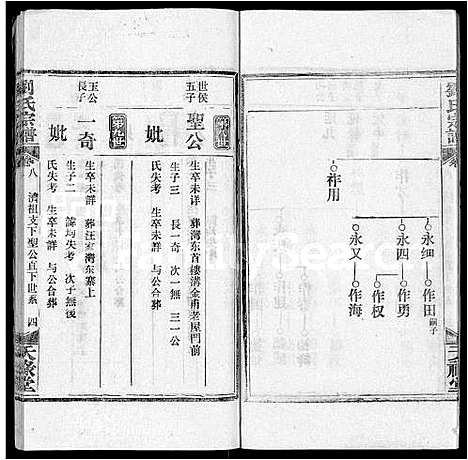 劉氏宗譜
祚用
永細
作田
嗣子
永四
作勇
作权
永又
作海
世侯
五子
聖公
生卒未详 葬灣东首縷溝金勇老屋門前
生子三 長一奇 次一無 三一公
妣
氏失考 生卒未詳 与公合葬
王公
長子
一奇
生卒未詳 葬汪家灣东寨上
生子二 諱均失考 次子無後
妣
氏失考 生卒未群 与公合葬
劉氏宗譜
卷八
濟祖支下聖公直下世系
四
天祿堂